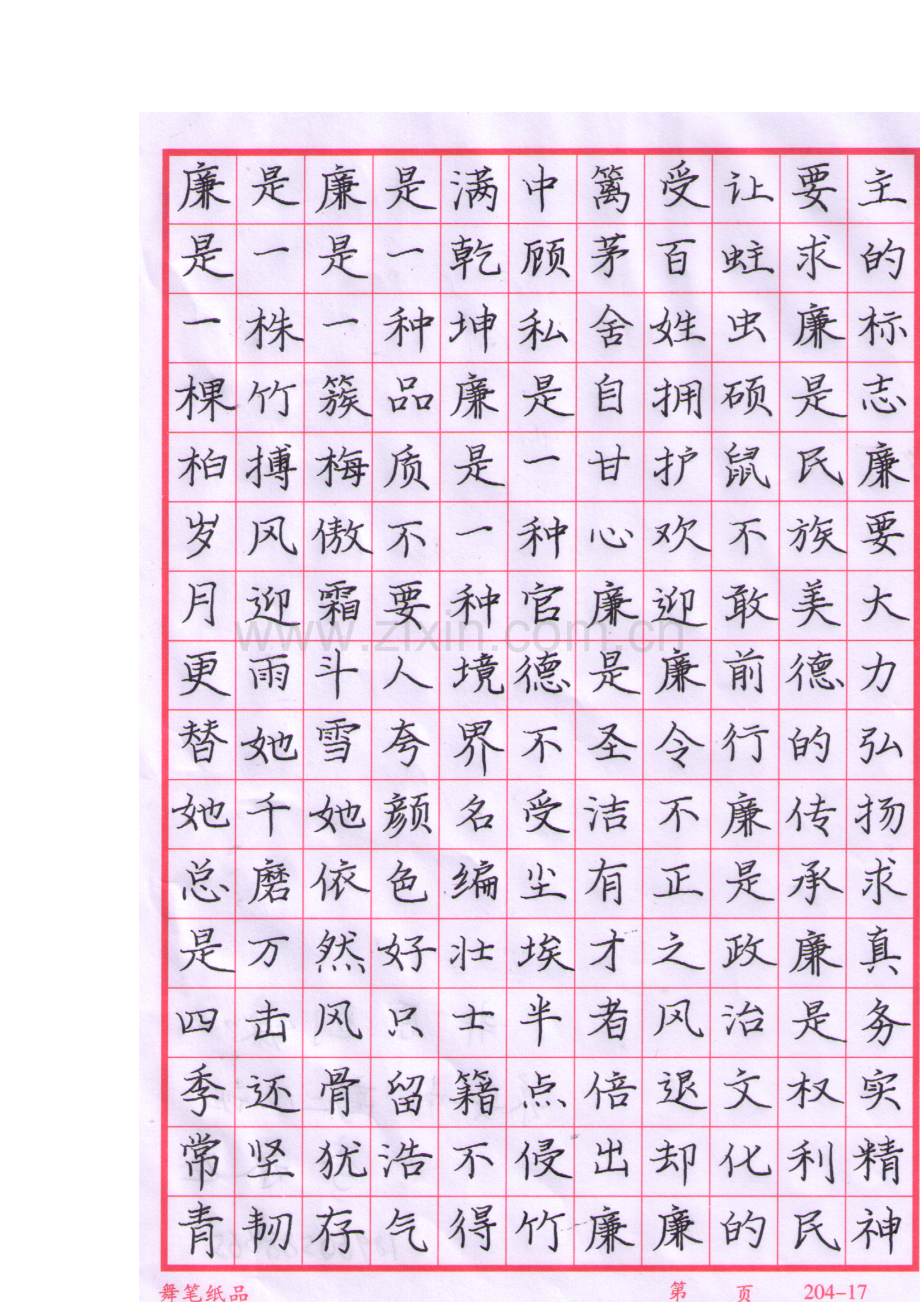 廉是一棵柏岁月更替她总是四季常青
是一株竹搏风迎雨她千磨万击还坚韧
廉是一簇梅傲霜斗雪她依然风骨犹存
是一种品质不要人夸颜色好只留浩气
满乾坤廉是一种境界名编壮士籍不得
中顾私是一种官德不受尘埃半点侵竹
篱茅舍自甘心廉是圣洁有才者倍出廉
受百姓拥护欢迎廉令不正之风退却廉
让蛀虫硕鼠不敢前行廉是政治文化的
要求廉是民族美德的传承廉是权利民
主的标志廉要大力弘扬求真务实精神
www.zixin.com.cn
舞笔纸品 第 页 204-17